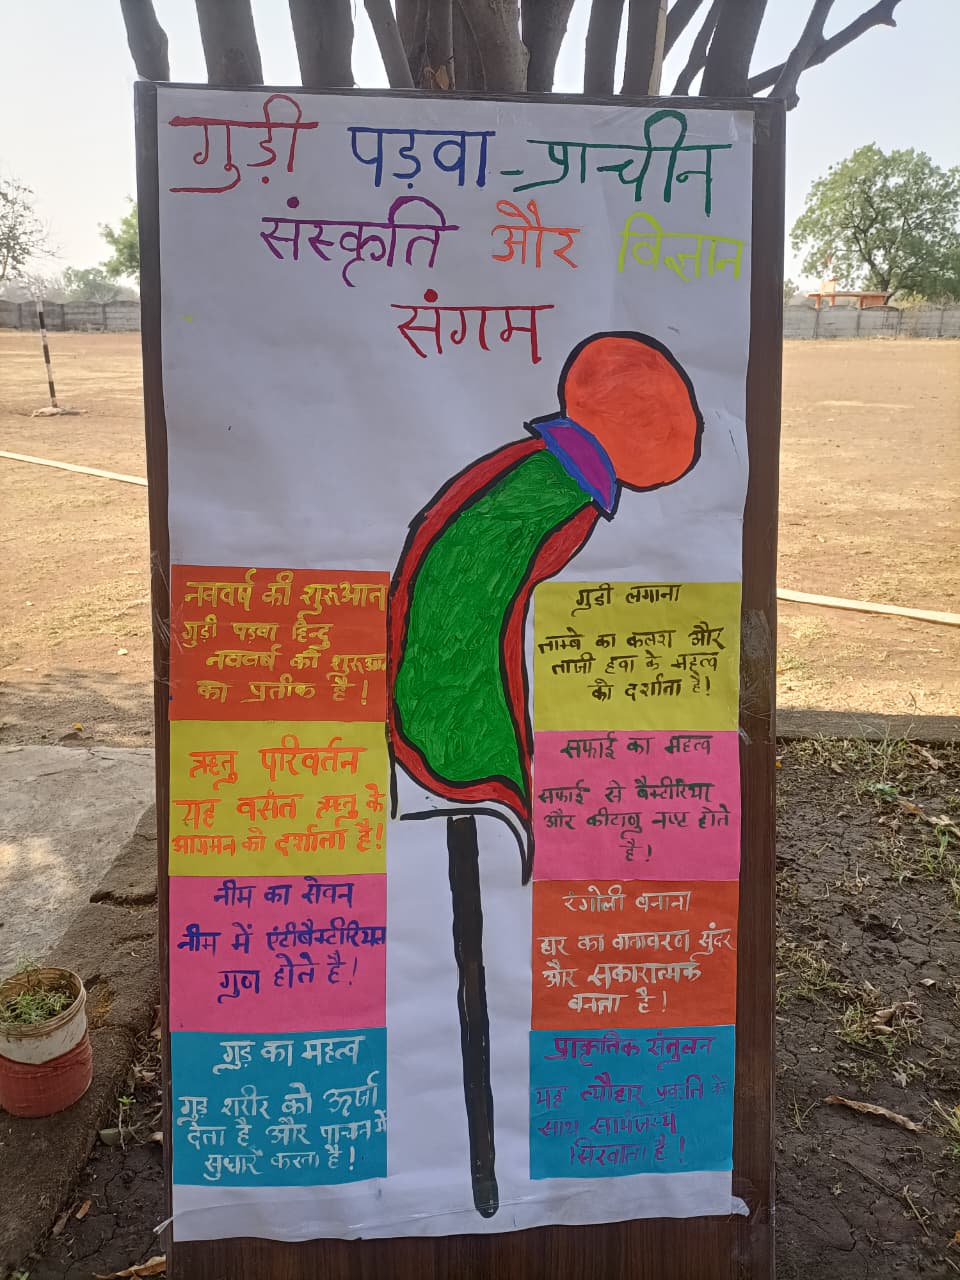 गुड़ी पड़वा - प्राचीन
संस्कृति और विज्ञान
संगम
नववर्ष की शुरूआत
गुड़ी पड़वा हिन्दु
नववर्ष की शुरूआत
का प्रतीक है!
ऋतु परिवर्तन
यह वसंत ऋतु के
आगमन को दर्शाता है!
नीम का सेवन
नीम में एंटीबैक्टीरियल
गुण होते है!
गुड़ का महत्व
गुड़ शरीर को ऊर्जा
देता है और पाचन में
सुधार करता है!
गुड़ी लगाना
ताम्बे का कलश और
ताजी हवा के महत्व
को दर्शाता है!
सफाई का महत्व
सफाई से बैक्टीरिया
और कीटाणु नष्ट होते
है!
रंगोली बनाना
घर का वातावरण सुंदर
और सकारात्मक
बनता है!
प्राकृतिक संतुलन
यह त्यौहार प्रकृति के
साथ सामंजस्य
सिखाता है!